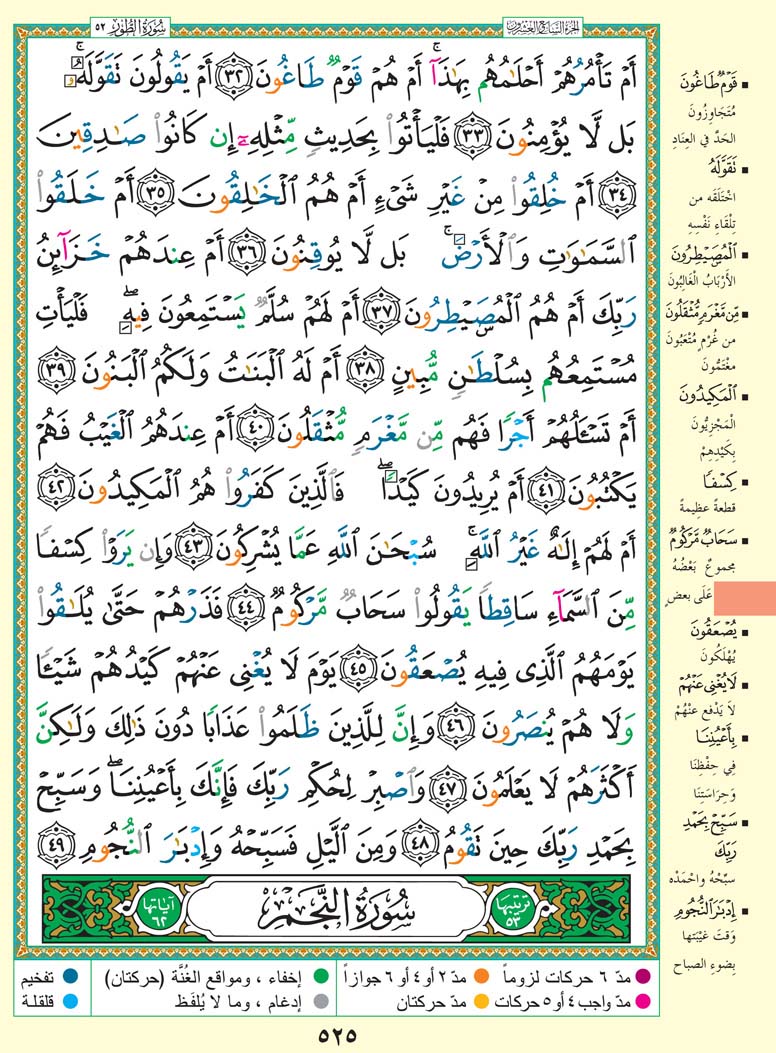 الجزء السابع والعشرون
سورة الطور ٥٢
أَمْ تَأْمُرُهُمْ أَحْلَٰمُهُم بِهَٰذَآ ۚ أَمْ هُمْ قَوْمٌ طَاغُونَ ٣٢ أَمْ يَقُولُونَ تَقَوَّلَهُۥ ۚ
بَل لَّا يُؤْمِنُونَ ٣٣ فَلْيَأْتُوا۟ بِحَدِيثٍ مِّثْلِهِۦٓ إِن كَانُوا۟ صَٰدِقِينَ
٣٤ أَمْ خُلِقُوا۟ مِنْ غَيْرِ شَىْءٍ أَمْ هُمُ ٱلْخَٰلِقُونَ ٣٥ أَمْ خَلَقُوا۟
ٱلسَّمَٰوَٰتِ وَٱلْأَرْضَ ۚ بَل لَّا يُوقِنُونَ ٣٦ أَمْ عِندَهُمْ خَزَآئِنُ
رَبِّكَ أَمْ هُمُ ٱلْمُصَۜيْطِرُونَ ٣٧ أَمْ لَهُمْ سُلَّمٌ يَسْتَمِعُونَ فِيهِ ۖ فَلْيَأْتِ
مُسْتَمِعُهُم بِسُلْطَٰنٍ مُّبِينٍ ٣٨ أَمْ لَهُ ٱلْبَنَٰتُ وَلَكُمُ ٱلْبَنُونَ ٣٩
أَمْ تَسْـَٔلُهُمْ أَجْرًا فَهُم مِّن مَّغْرَمٍ مُّثْقَلُونَ ٤٠ أَمْ عِندَهُمُ ٱلْغَيْبُ فَهُمْ
يَكْتُبُونَ ٤١ أَمْ يُرِيدُونَ كَيْدًا ۖ فَٱلَّذِينَ كَفَرُوا۟ هُمُ ٱلْمَكِيدُونَ ٤٢
أَمْ لَهُمْ إِلَٰهٌ غَيْرُ ٱللَّهِ ۚ سُبْحَٰنَ ٱللَّهِ عَمَّا يُشْرِكُونَ ٤٣ وَإِن يَرَوْا۟ كِسْفًا
مِّنَ ٱلسَّمَآءِ سَاقِطًا يَقُولُوا۟ سَحَابٌ مَّرْكُومٌ ٤٤ فَذَرْهُمْ حَتَّىٰ يُلَٰقُوا۟
يَوْمَهُمُ ٱلَّذِى فِيهِ يُصْعَقُونَ ٤٥ يَوْمَ لَا يُغْنِى عَنْهُمْ كَيْدُهُمْ شَيْـًٔا
وَلَا هُمْ يُنصَرُونَ ٤٦ وَإِنَّ لِلَّذِينَ ظَلَمُوا۟ عَذَابًا دُونَ ذَٰلِكَ وَلَٰكِنَّ
أَكْثَرَهُمْ لَا يَعْلَمُونَ ٤٧ وَٱصْبِرْ لِحُكْمِ رَبِّكَ فَإِنَّكَ بِأَعْيُنِنَا ۖ وَسَبِّحْ
بِحَمْدِ رَبِّكَ حِينَ تَقُومُ ٤٨ وَمِنَ ٱلَّيْلِ فَسَبِّحْهُ وَإِدْبَٰرَ ٱلنُّجُومِ ٤٩
ترتيبها ٥٣
سُورَةُ النَّجْمِ
آياتها ٦٢
▪ قَوْمٌ طَاغُونَ
مُتَجَاوِزُونَ
الحَدَّ في العِنَادِ
▪ تَقَوَّلَهُ
اخْتَلَقَه من
تِلْقَاءِ نَفْسِهِ
▪ ٱلْمُصَيْطِرُونَ
الأَرْبَابُ الغَالِبُونَ
▪ مِّن مَّغْرَمٍ مُّثْقَلُونَ
من غُرْمٍ مُتْعَبُونَ
مغْتَمُّونَ
▪ ٱلْمَكِيدُونَ
الْمَجْزِيُّونَ
بِكَيْدِهِمْ
▪ كِسْفًا
قطعةً عظيمةً
▪ سَحَابٌ مَّرْكُومٌ
مجموعٌ بَعْضُهُ
عَلَى بعضٍ
▪ يُصْعَقُونَ
يُهْلَكُونَ
▪ لَا يُغْنِى عَنْهُمْ
لا يَدْفَع عنْهُمْ
▪ بِأَعْيُنِنَا
فِي حِفْظِنَا
وَحِرَاسَتِنَا
▪ سَبِّحْ بِحَمْدِ
رَبِّكَ
سبِّحْهُ واحْمَدْه
▪ إِدْبَٰرَ ٱلنُّجُومِ
وَقتَ غَيْبَتِها
بِضوءِ الصباح
مدّ ٦ حركات لزوماً
مدّ ٢ أو ٤ أو ٦ جوازاً
إخفاء ، ومواقع الغُنَّة (حركتان)
تفخيم
مدّ واجب ٤ أو ٥ حركات
مدّ حركتان
إدغام ، وما لا يُلفَظ
قلقلة
٥٢٥